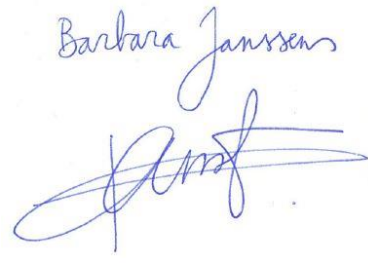 Barbara Janssens